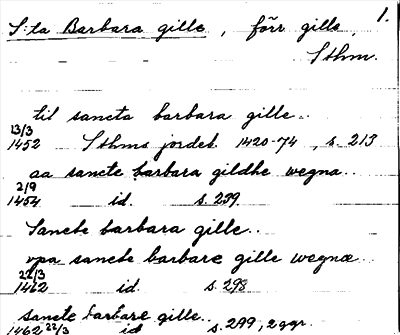 1.
S:ta Barbara gille, förr gille,
Sthm.
til sancta barbara gille..
13/3
1452 Sthms jordeb. 1420-74, s. 213
aa sancte barbara gildhe wegna..
2/9
1454 id. s. 239
Sancte barbara gille..
vpa sancte barbare gille wegnæ
22/3
1462 id. s. 298
sancte barbare gille..
1462 22/3 id s. 299, 2 ggr.